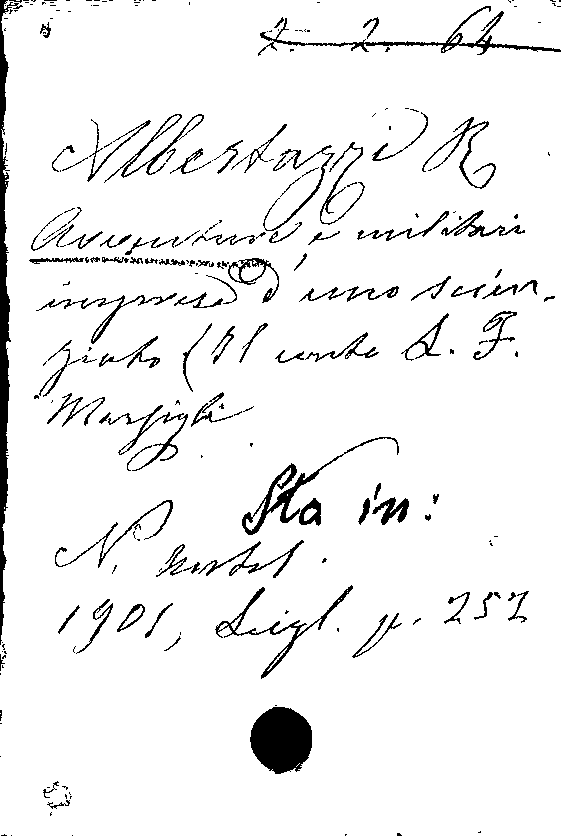 2. 2. 64
Albertazzi A
Avventure e militari
imprese d'uno scien-
ziato (Il conte L. F.
Marsigli
Sta in:
N. Antol.
1901, Luigl. p. 252